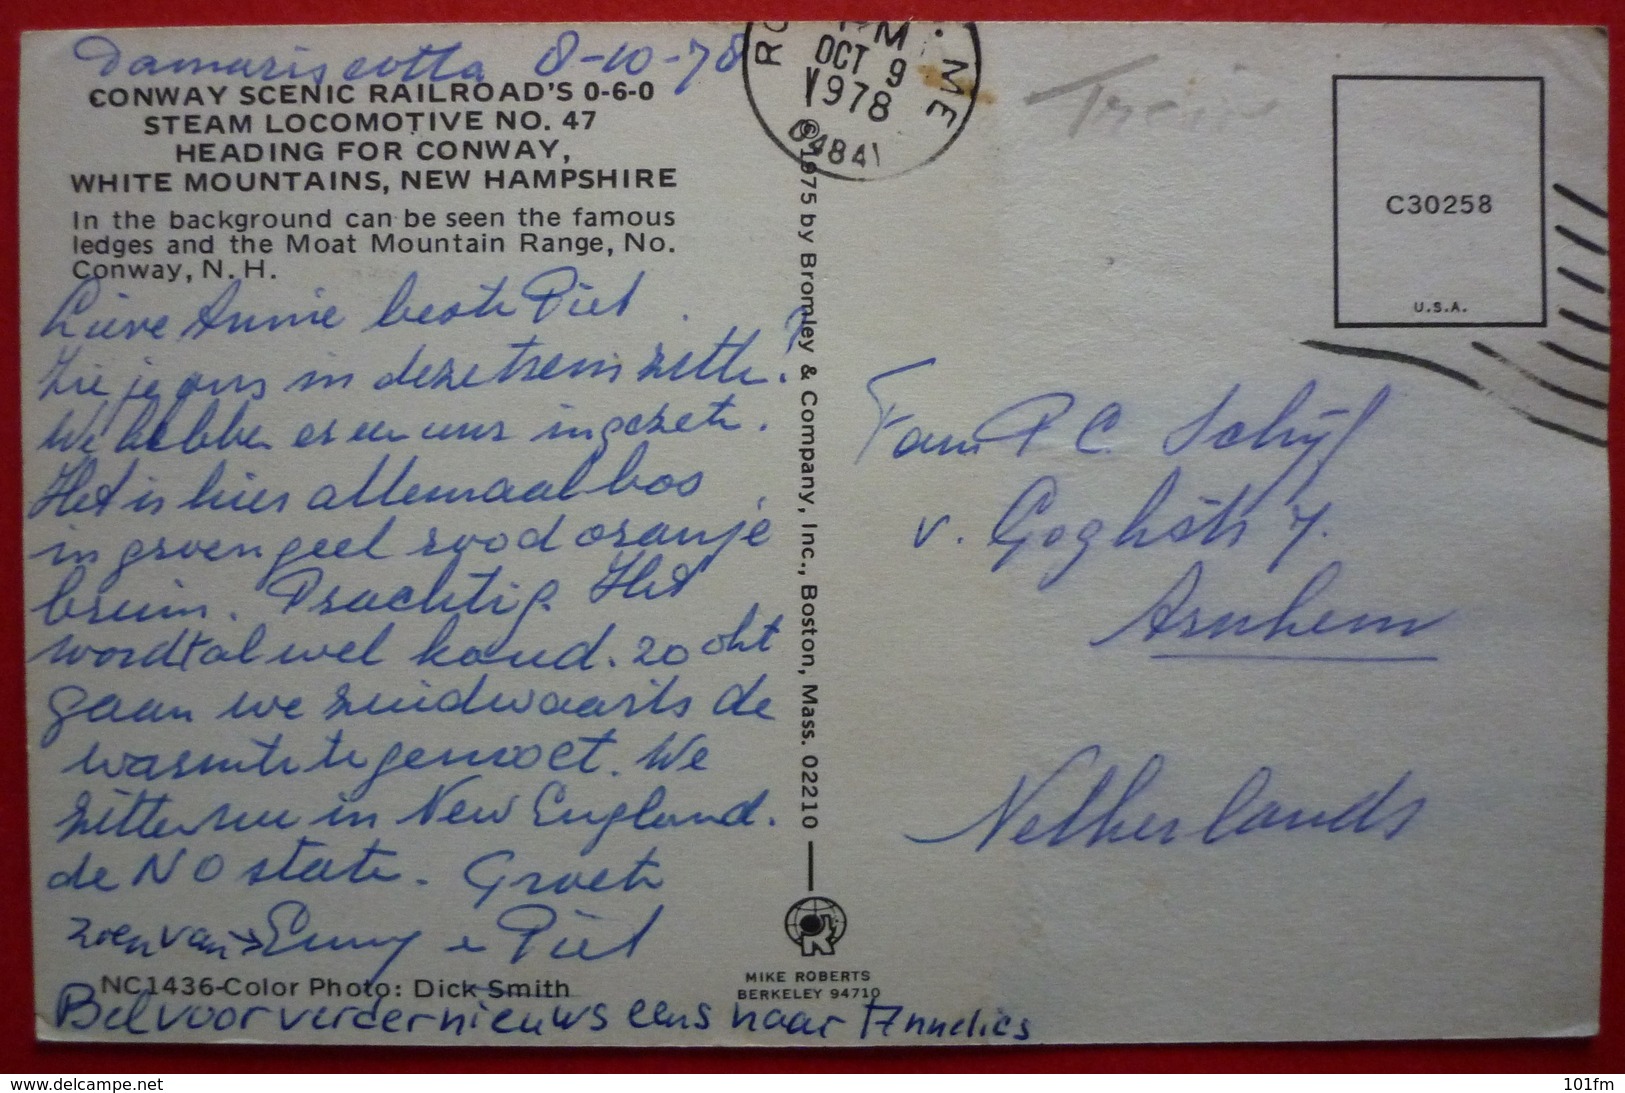 Damariscotta 8-10-78
CONWAY SCENIC RAILROAD'S 0-6-0
STEAM LOCOMOTIVE NO. 47
HEADING FOR CONWAY,
WHITE MOUNTAINS, NEW HAMPSHIRE
In the background can be seen the famous
ledges and the Moat Mountain Range, No.
Conway, N. H.
Lieve Annie beste Piet
Zie je ons in deze trein zitten?
We hebben er een uur in gezeten.
Het is hier allemaal bos
in groen geel rood oranje
bruin. Prachtig. Het
wordt al wel koud. 20 okt
gaan we zuidwaarts de
warmte tegemoet. We
zitten nu in New England.
de N O staten. Groeten
zoenvan→ Emmy en Piet
NC1436-Color Photo: Dick Smith
Bel voor verder nieuws eens naar Annelies
© 1975 by Bromley & Company, Inc., Boston, Mass. 02210
MIKE ROBERTS
BERKELEY 94710
PM
OCT 9
1978
ME
04841
Trein
C30258
U.S.A.
Fam P C. Schijf
v. Goghstr 7.
Arnhem
Netherlands
www.delcampe.net
101fm